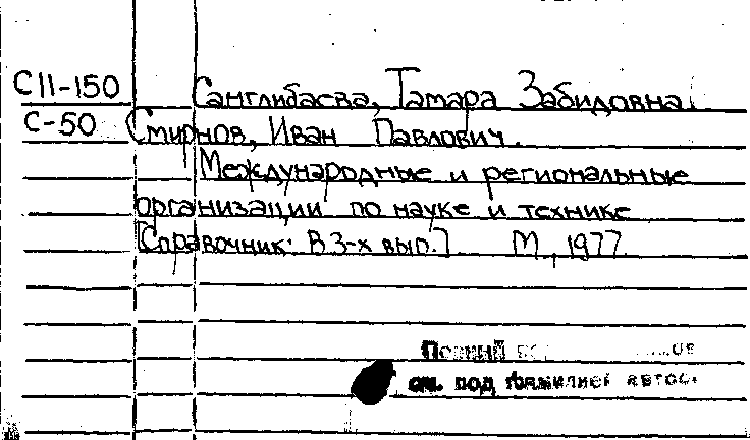 С11-150 Санглибаева, Тамара Забидовна.
С-50 Смирнов, Иван Павлович.
Международные и региональные
организации по науке и технике
[Справочник: В 3-х вып.] М., 1977.
Полный
см. под фамилией автора